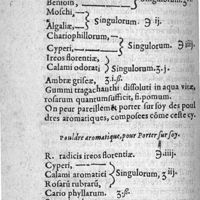 Benioin, Singulorum. ʒ.
Moschi,
Algaliæ, Singulorum ℈ ij.
Chariophillorum,
Cyperi, Singulorum. ℈ iiij.
Ireos florentiæ,
Calami odorati Singulorum. ʒ. j.
Ambræ griseæ, ʒ. i. ß.
Gummi tragachanthi dissoluti in aqua vitæ,
rosarum quantum sufficit, fi. pomum.
On peut pareillemēt porter sur soy des poul
dres aromatiques, composées cōme ceste cy.
Pouldre aromatique, pour Porter sur soy.
R. radicis ireos florentiæ. ℈. iiij.
Cyperi,
Calami aromatici Singulorum, ʒ iij
Rosarū rubrarū,
Cario phyllarum. ʒ. ß.